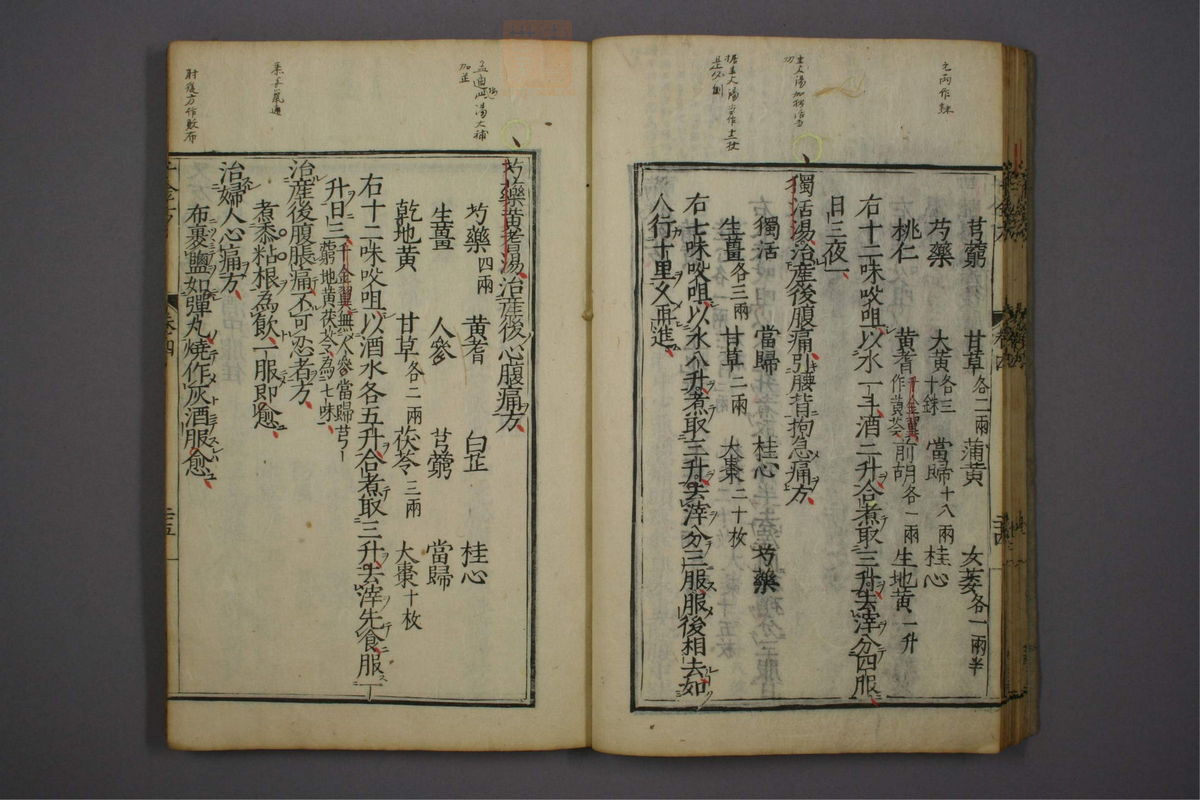 芎藭 甘草各二兩 蒲黃 女萎各一兩半
芍藥 大黃各三十銖 當歸十八兩 桂心
桃仁 黃耆千金翼作黃芩 前胡各一兩 生地黃一升
右十二味㕮咀以水一斗酒二升合煮取三升去滓分四服
日三夜一
獨活湯治產後腹痛引腰背拘急痛方
獨活 當歸 桂心 芍藥
生薑各三兩 甘草二兩 大棗二十枚
右七味㕮咀以水八升煮取三升去滓分三服服後相去如
人行十里久再進
芍藥黃耆湯治產後心腹痛方
芍藥四兩 黃耆 白芷 桂心
生薑 人參 芎藭 當歸
乾地黃 甘草各二兩 茯苓三兩 大棗十枚
右十二味㕮咀以酒水各五升合煮取三升去滓先食服一
升日三千金翼無人參當歸芎藭地黃茯苓為七味
治產後腹脹痛不可忍者方
煮黍粘根為飲一服即愈
治婦人心痛方
布裹鹽如彈丸燒作灰酒服愈
肘後方作敗布